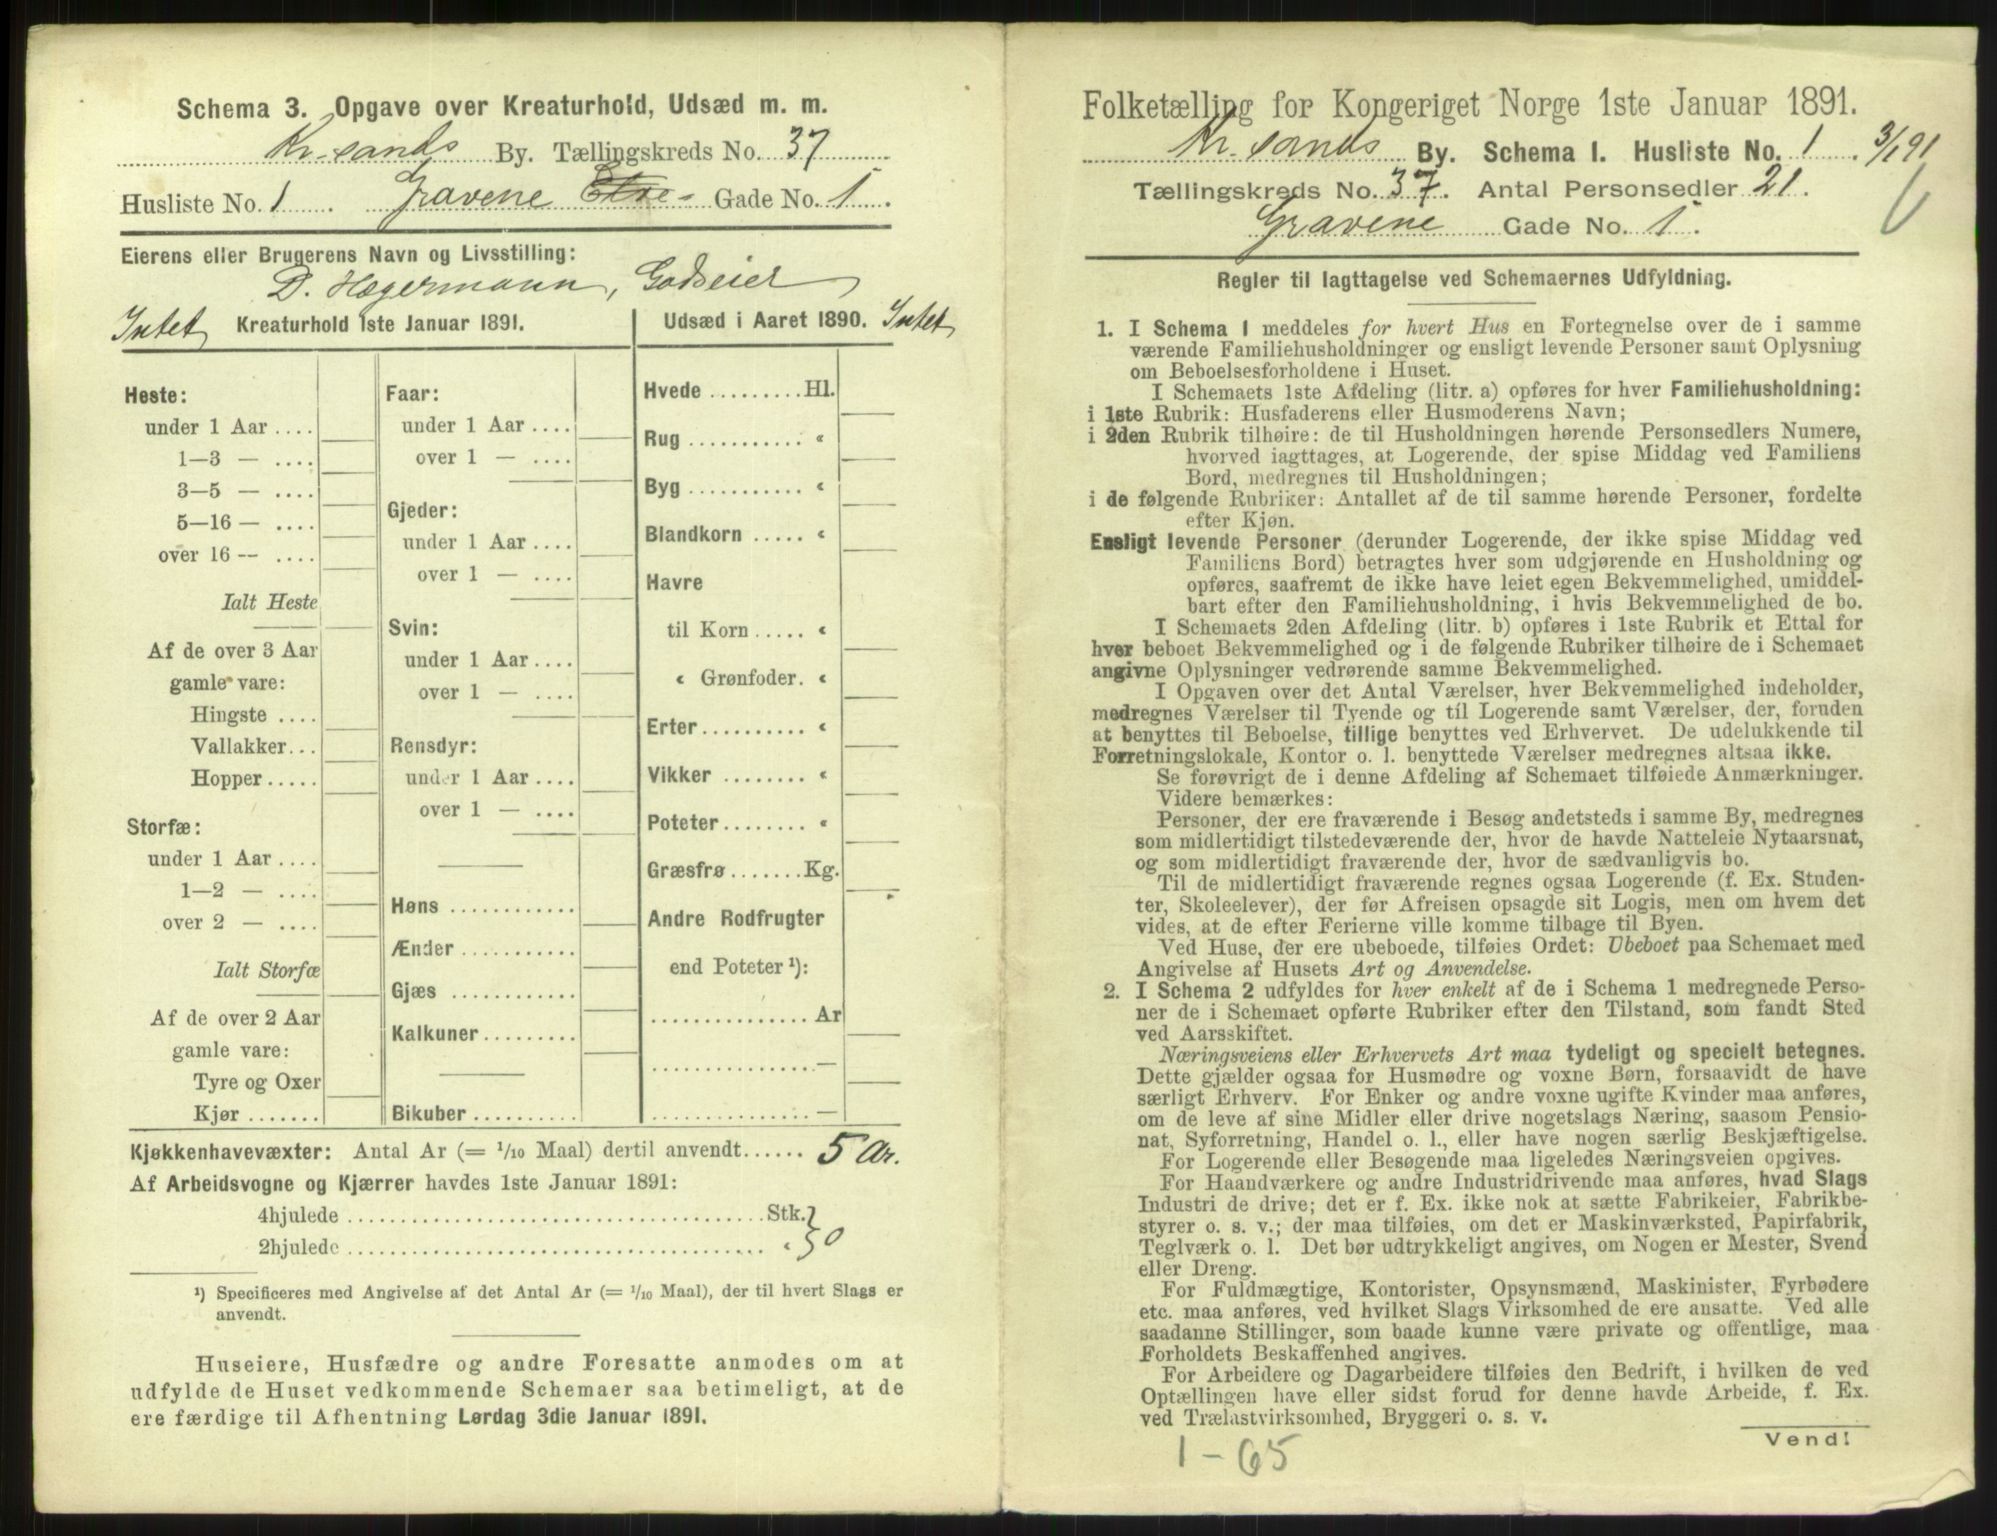 Schema 3. Opgave over Kreaturhold, Udsæd m. m.
Kr-sands By. Tællingskreds No. 37
Husliste No. 1. Gravene Gade No. 1.
Eierens eller Brugerens Navn og Livsstilling:
D. Hægermann, Godseier
Intet Kreaturhold 1ste Januar 1891.
Heste:
under 1 Aar ....
1—3 — ....
3—5 — ....
5—16 — ....
over 16 — ....
Ialt Heste
Af de over 3 Aar
gamle vare:
Hingste ....
Vallakker...
Hopper.....
Storfæ:
under 1 Aar ....
1—2 — ....
over 2 — ....
Ialt Storfæ
Af de over 2 Aar
gamle vare:
Tyre og Oxer
Kjør .......
Faar:
under 1 Aar ....
over 1 — ....
Gjeder:
under 1 Aar ....
over 1 — ....
Svin:
under 1 Aar ....
over 1 — ....
Rensdyr:
under 1 Aar ....
over 1 — ....
Høns ............
Ænder ...........
Gjæs ............
Kalkuner.........
Bikuber ..........
Udsæd i Aaret 1890. Intet
Hvede .........Hl.
Rug ........... «
Byg ........... «
Blandkorn ..... «
Havre
til Korn ..... «
« Grønfoder. «
Erter.......... «
Vikker ........ «
Poteter........ «
Græsfrø.......Kg.
Andre Rodfrugter
end Poteter ¹):
...............Ar
...............—
...............—
Kjøkkenhavevæxter: Antal Ar (= 1/10 Maal) dertil anvendt...... 5 Ar.
Af Arbeidsvogne og Kjærrer havdes 1ste Januar 1891:
4hjulede ........................................Stk.
2hjulede ........................................ « } 0
¹) Specificeres med Angivelse af det Antal Ar (= 1/10 Maal), der til hvert Slags er
anvendt.
Huseiere, Husfædre og andre Foresatte anmodes om at
udfylde de Huset vedkommende Schemaer saa betimeligt, at de
ere færdige til Afhentning Lørdag 3die Januar 1891.
Folketælling for Kongeriget Norge 1ste Januar 1891.
Kr. sands By. Schema I. Husliste No. 1. 3/1 91
Tællingskreds No. 37. Antal Personsedler 21.
Gravene Gade No. 1.
Regler til Iagttagelse ved Schemaernes Udfyldning.
1. I Schema 1 meddeles for hvert Hus en Fortegnelse over de i samme
værende Familiehusholdninger og ensligt levende Personer samt Oplysning
om Beboelsesforholdene i Huset.
I Schemaets 1ste Afdeling (litr. a) opføres for hver Familiehusholdning:
i 1ste Rubrik: Husfaderens eller Husmoderens Navn;
i 2den Rubrik tilhøire: de til Husholdningen hørende Personsedlers Numere,
hvorved iagttages, at Logerende, der spise Middag ved Familiens
Bord, medregnes til Husholdningen;
i de følgende Rubriker: Antallet af de til samme hørende Personer, fordelte
efter Kjøn.
Ensligt levende Personer (derunder Logerende, der ikke spise Middag ved
Familiens Bord) betragtes hver som udgjørende en Husholdning og
opføres, saafremt de ikke have leiet egen Bekvemmelighed, umiddel-
bart efter den Familiehusholdning, i hvis Bekvemmelighed de bo.
I Schemaets 2den Afdeling (litr. b) opføres i 1ste Rubrik et Ettal for
hver beboet Bekvemmelighed og i de følgende Rubriker tilhøire de i Schemaet
angivne Oplysninger vedrørende samme Bekvemmelighed.
I Opgaven over det Antal Værelser, hver Bekvemmelighed indeholder,
medregnes Værelser til Tyende og til Logerende samt Værelser, der, foruden
at benyttes til Beboelse, tillige benyttes ved Erhvervet. De udelukkende til
Forretningslokale, Kontor o. l. benyttede Værelser medregnes altsaa ikke.
Se forøvrigt de i denne Afdeling af Schemaet tilføiede Anmærkninger.
Videre bemærkes:
Personer, der ere fraværende i Besøg andetsteds i samme By, medregnes
som midlertidigt tilstedeværende der, hvor de havde Natteleie Nytaarsnat,
og som midlertidigt fraværende der, hvor de sædvanligvis bo.
Til de midlertidigt fraværende regnes ogsaa Logerende (f. Ex. Studen-
ter, Skoleelever), der før Afreisen opsagde sit Logis, men om hvem det
vides, at de efter Ferierne ville komme tilbage til Byen.
Ved Huse, der ere ubeboede, tilføies Ordet: Ubeboet paa Schemaet med
Angivelse af Husets Art og Anvendelse.
2. I Schema 2 udfyldes for hver enkelt af de i Schema 1 medregnede Perso-
ner de i Schemaet opførte Rubriker efter den Tilstand, som fandt Sted
ved Aarsskiftet.
Næringsveiens eller Erhvervets Art maa tydeligt og specielt betegnes.
Dette gjælder ogsaa for Husmødre og voxne Børn, forsaavidt de have
særligt Erhverv. For Enker og andre voxne ugifte Kvinder maa anføres,
om de leve af sine Midler eller drive nogetslags Næring, saasom Pensio-
nat, Syforretning, Handel o. l., eller have nogen særlig Beskjæftigelse.
For Logerende eller Besøgende maa ligeledes Næringsveien opgives.
For Haandværkere og andre Industridrivende maa anføres, hvad Slags
Industri de drive; det er f. Ex. ikke nok at sætte Fabrikeier, Fabrikbe-
styrer o. s. v.; der maa tilføies, om det er Maskinværksted, Papirfabrik,
Teglværk o. l. Det bør udtrykkeligt angives, om Nogen er Mester, Svend
eller Dreng.
For Fuldmægtige, Kontorister, Opsynsmænd, Maskinister, Fyrbødere
etc. maa anføres, ved hvilket Slags Virksomhed de ere ansatte. Ved alle
saadanne Stillinger, som baade kunne være private og offentlige, maa
Forholdets Beskaffenhed angives.
For Arbeidere og Dagarbeidere tilføies den Bedrift, i hvilken de ved
Optællingen have eller sidst forud for denne havde Arbeide, f. Ex.
ved Trælastvirksomhed, Bryggeri o. s. v.
Vend!
1 - 65